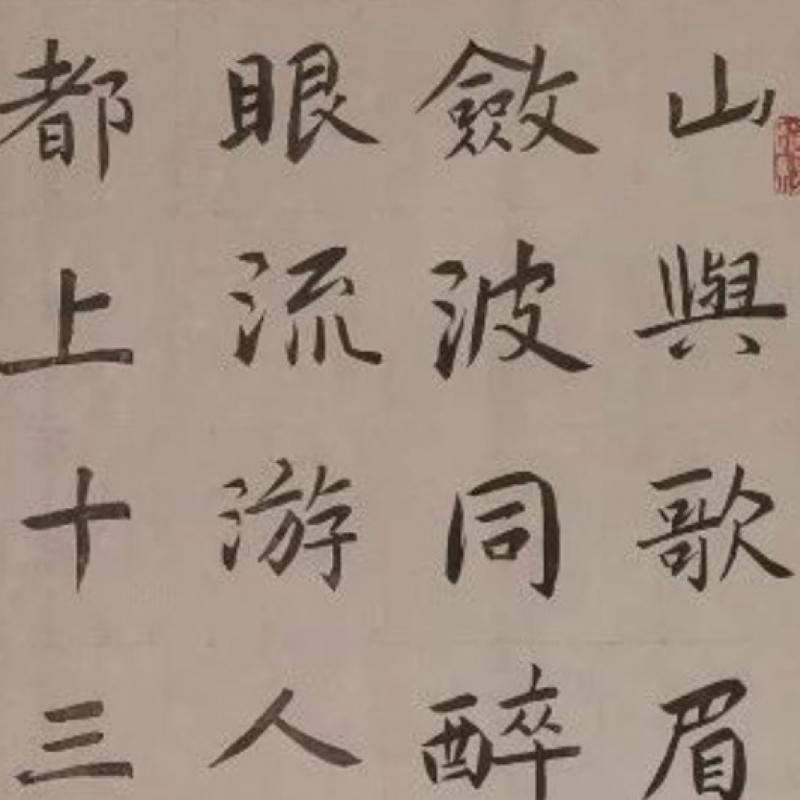 山與歌眉
斂波同醉
眼流游人
都上十三